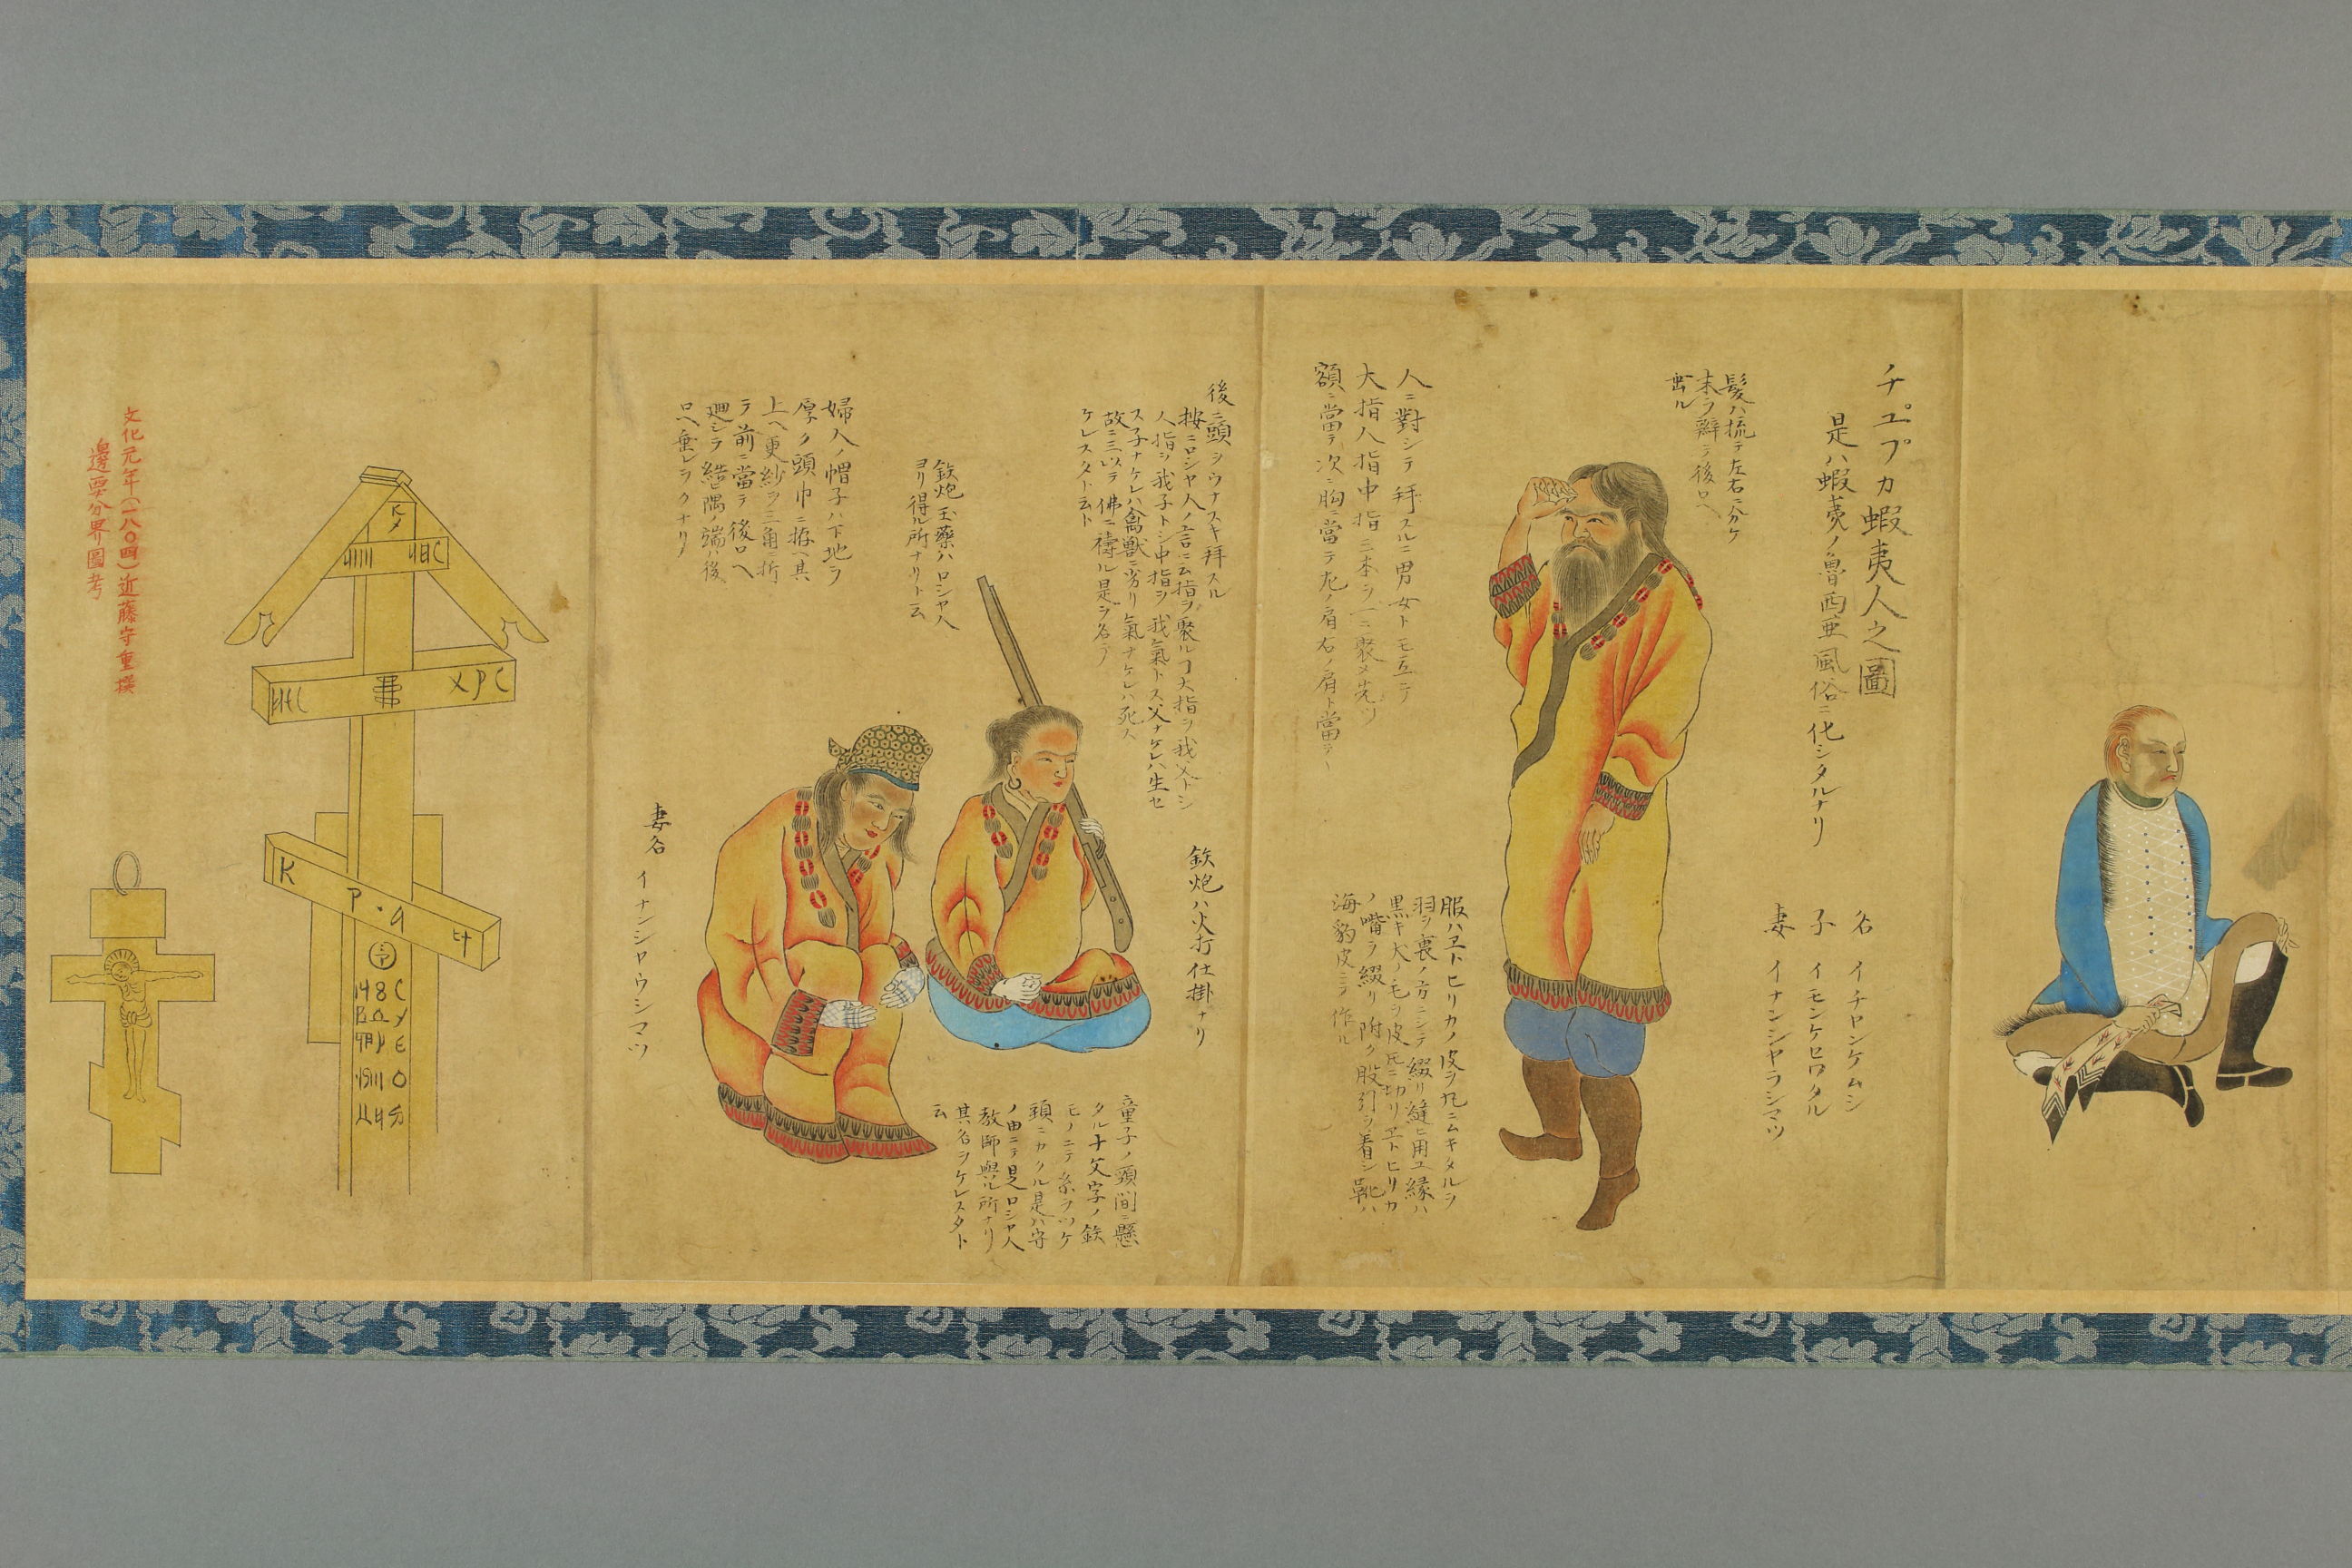 チュプカ蝦夷人之圖
是ハ蝦夷ノ魯西亜風俗ニ化シタルナリ
名 イチヤンケムシ
子 イモンケロワタル
妻 イナンシヤラシマツ
髪ハ梳テ左右ニ分ケ
末ヲ辮テ後ロヘ
垂ル
人ニ對シテ拜スルニ男女トモ互ニテ
大指人指中指三本ヲ一ニ聚メ先ツ
額ニ當テ次ニ胸ニ當テ左ノ肩右ノ肩ト當テ
服ハヱトヒリカノ皮ヲ丸ニムキタルヲ
羽ヲ裏ノ方ニシテ綴リ縫ヒ用ユ縁ハ
黒キ犬ノ毛ヲ皮氏ニ切リヱトヒリカ
ノ嘴ヲ綴リ附ク股引ヲ着シ靴ハ
海豹皮ニテ作ル
後ニ頭ヲウナスキ拜スル
按ニロシヤ人ノ言ニ云指ヲ聚ルコ大指ヲ我父トシ
人指ヲ我子トシ中指ヲ我氣トス父ナケレハ生セ
ス子ナケレハ禽獣ニ劣リ氣ナケレハ死ス
故ニ三ヲ以テ佛ニ禱ル是ヲ名テ
ケレスタト云ト
鉄炮ハ火打仕掛ナリ
鉄炮玉藥ハロシヤ人
ヨリ得ル所ナリト云
婦人ノ帽子ハ下地ヲ
厚ク頭巾ニ拵ヘ其
上ヘ更紗ヲ三角ニ折
テ前ニ當テ後ロヘ
廻シテ結隅ノ端ハ後
ロヘ垂レヲクナリ
童子ノ頸間ニ懸
タル十文字ノ鉄
モノニテ糸ヲツケ
頸ニカクル是ハ守
ノ由ニテ是ロシヤ人
教師與ル所ナリ
其名ヲケレスタト
云
妻名 イナンシヤウシマツ
ХРС
К
Р・Ч
文化元年(一八〇四)近藤守重撰
邊要分界圖考